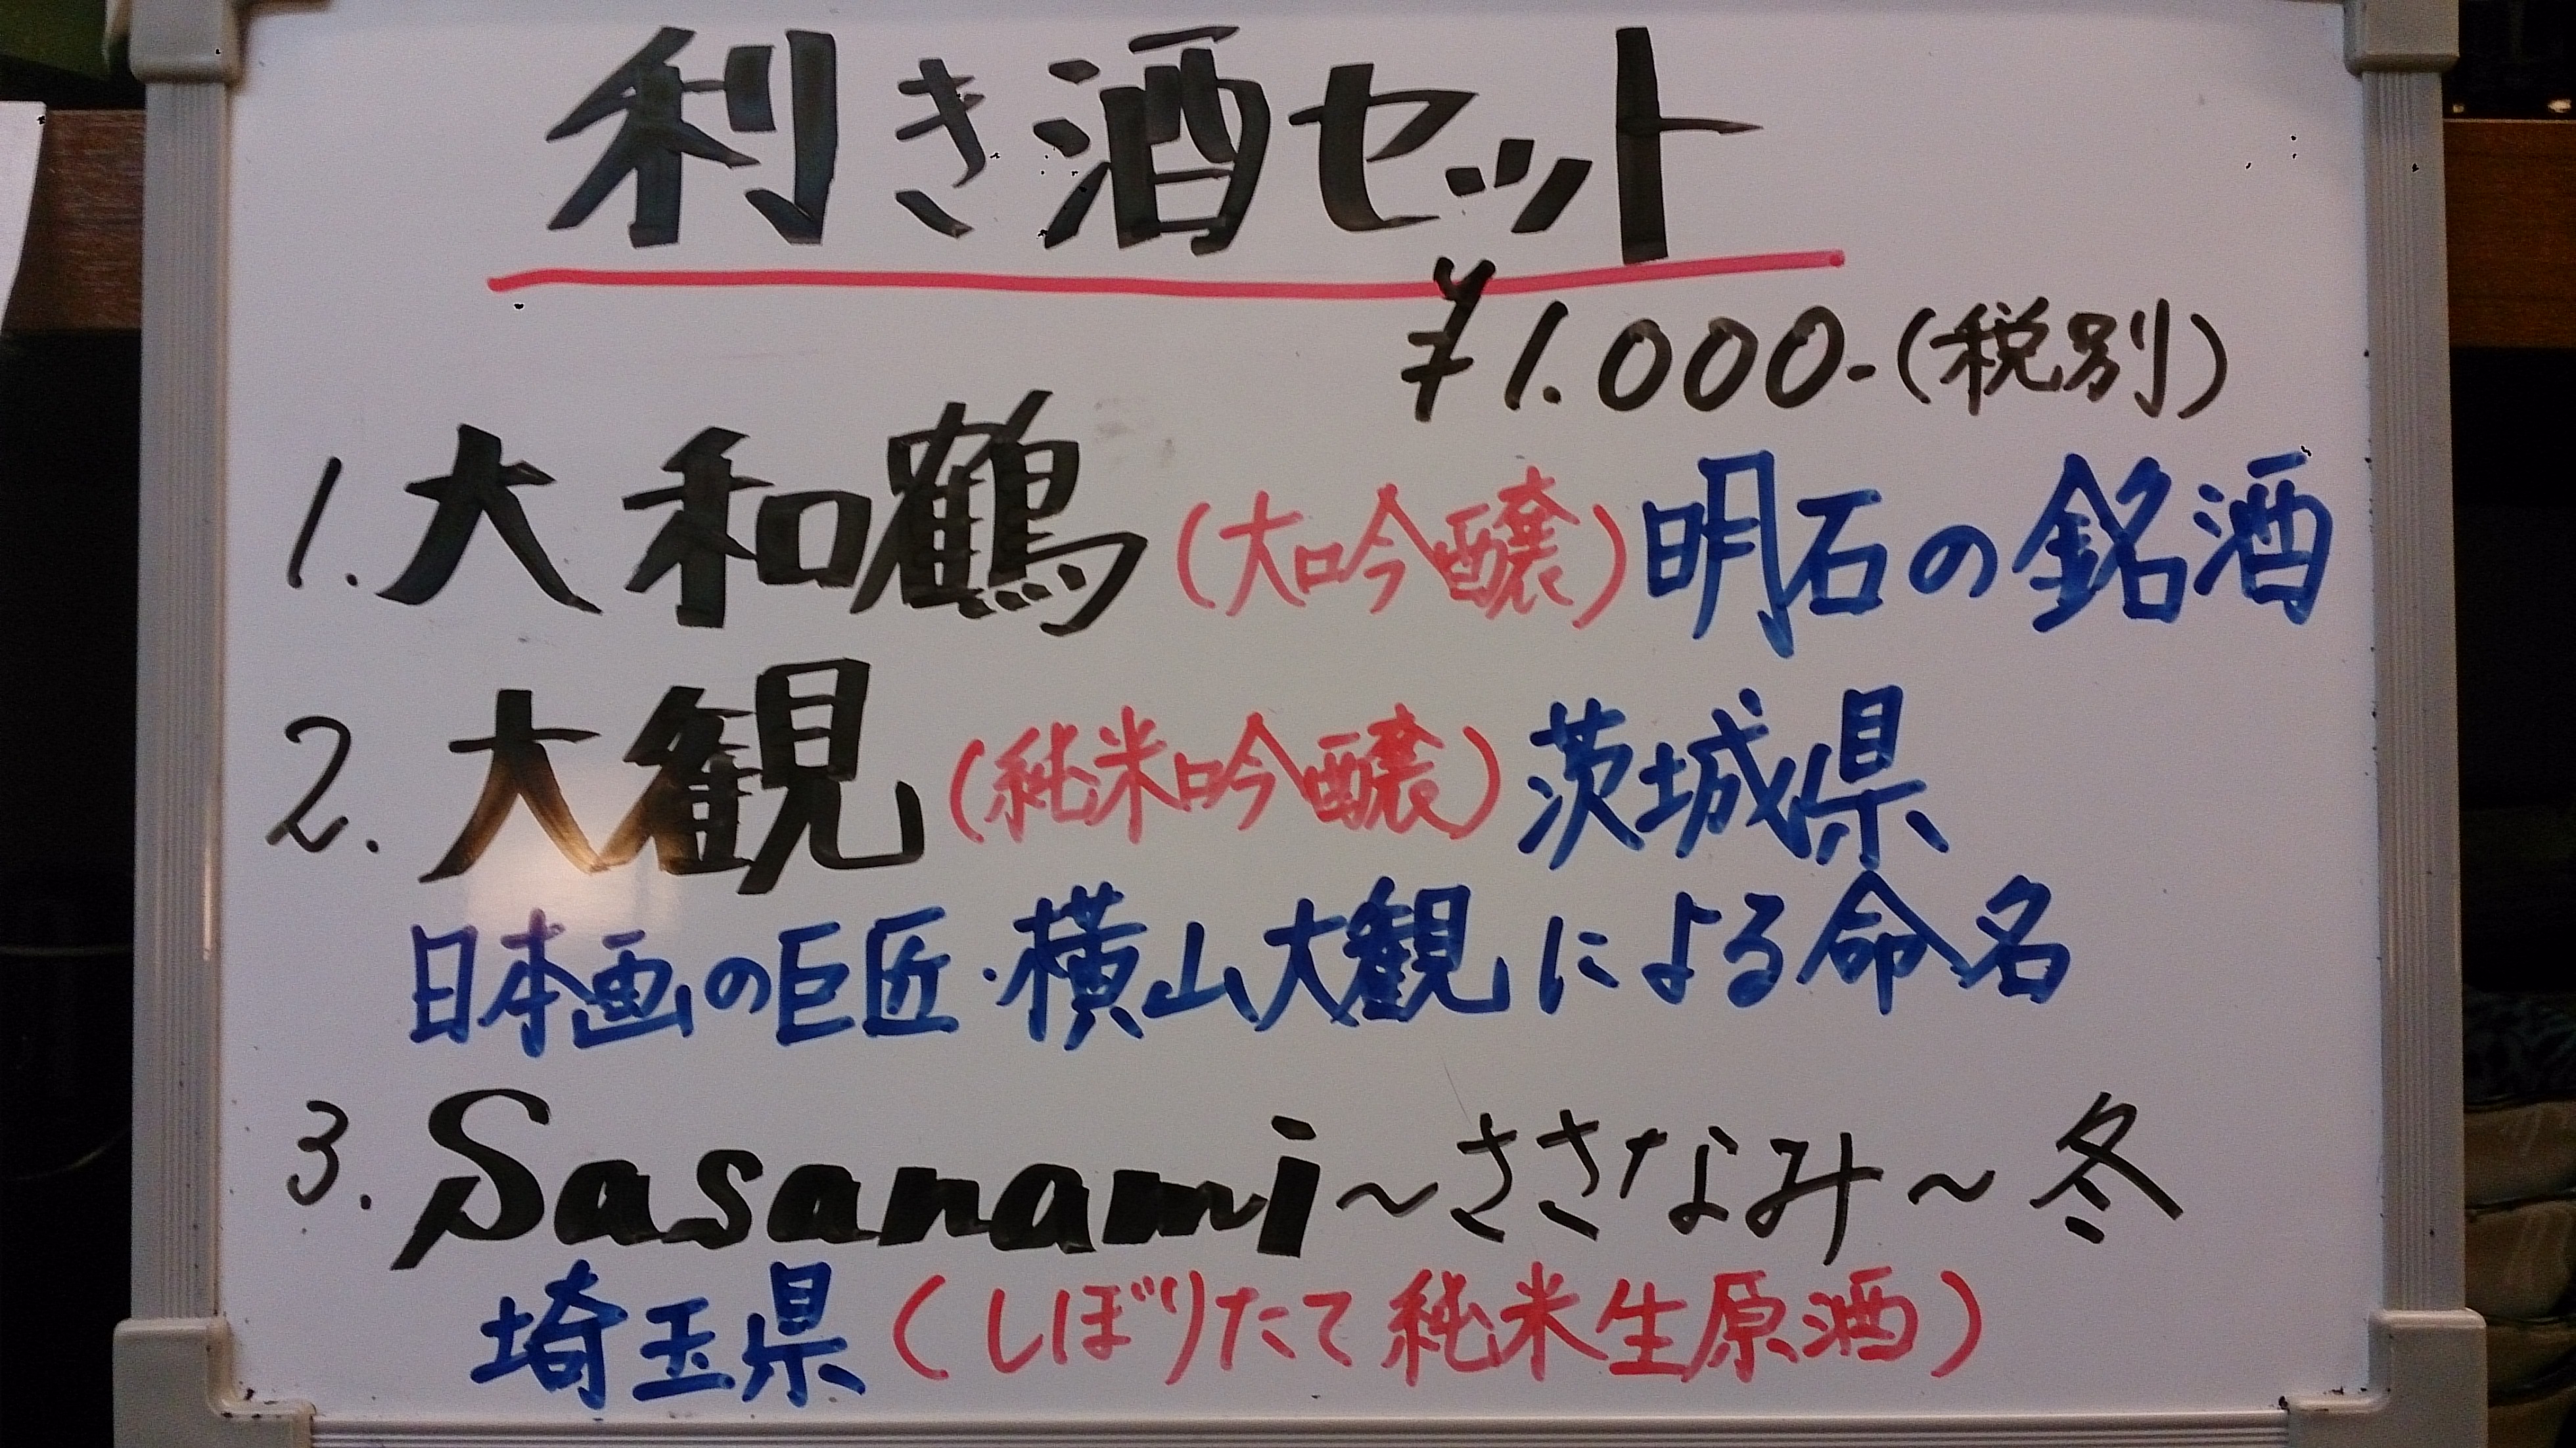 利き酒セット
¥1.000-(税別)
1.大和鶴(大吟醸)明石の銘酒
2.大観(純米吟醸)茨城県
日本画の巨匠・横山大観による命名
3.Sasanami～ささなみ～冬
埼玉県(しぼりたて純米生原酒)